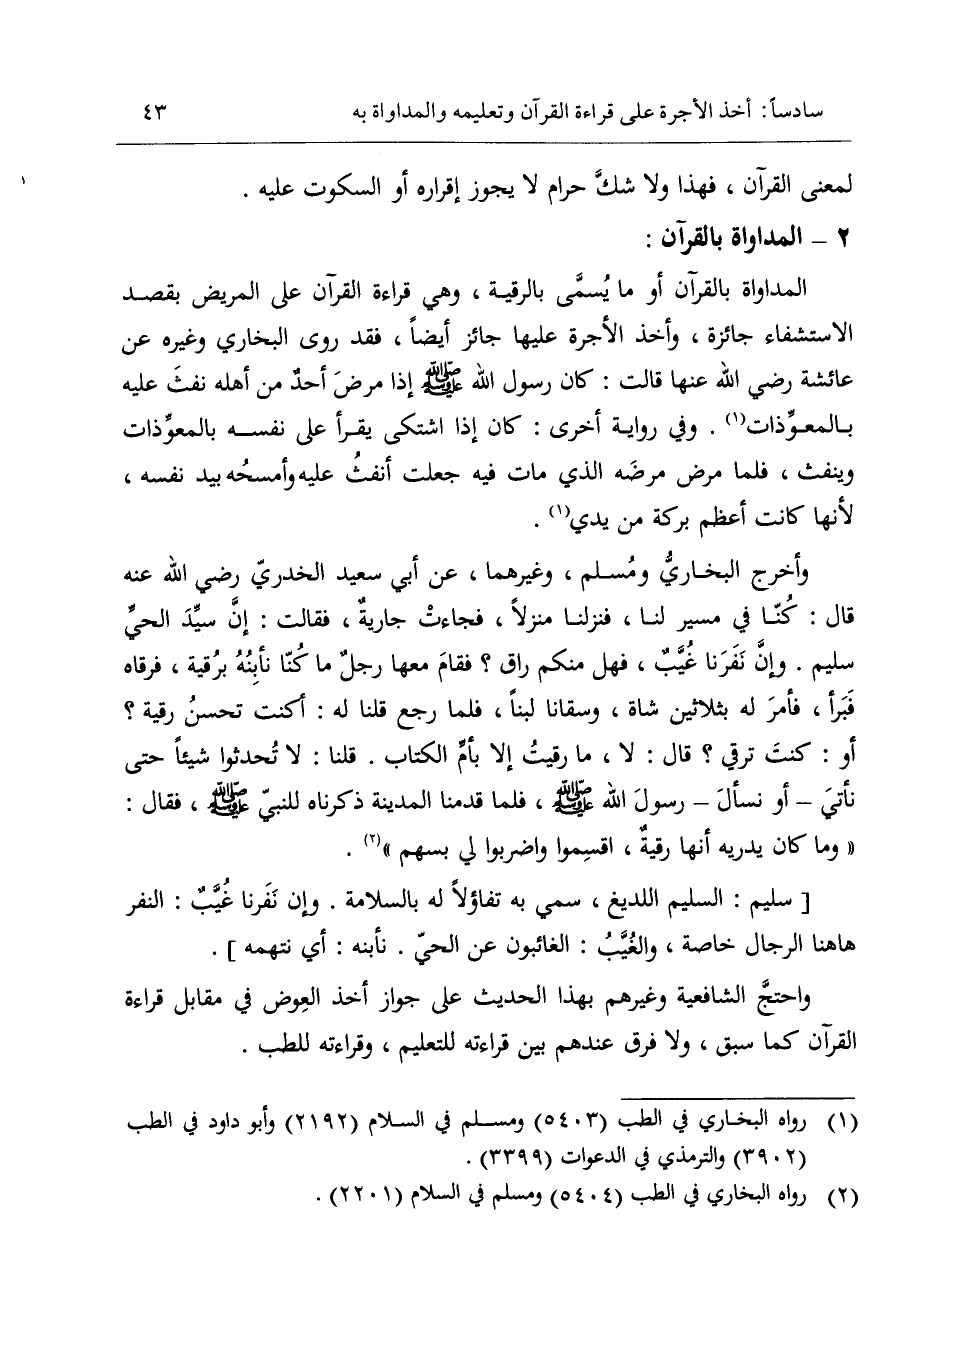 سادساً: أخذ الأجرة على قراءة القرآن وتعليمه والمداواة به ٤٣
لمعنى القرآن ، فهذا ولا شكَّ حرام لا يجوز إقراره أو السكوت عليه .
٢ – المداواة بالقرآن :
المداواة بالقرآن أو ما يُسمَّى بالرقية ، وهي قراءة القرآن على المريض بقصد
الاستشفاء جائزة ، وأخذ الأجرة عليها جائز أيضاً ، فقد روى البخاري وغيره عن
عائشة رضي الله عنها قالت : كان رسول الله ﷺ إذا مرضَ أحدٌ من أهله نفثَ عليه
بالمعوِّذات(١) . وفي رواية أخرى : كان إذا اشتكى يقرأ على نفسه بالمعوِّذات
وينفث ، فلما مرض مرضَه الذي مات فيه جعلت أنفثُ عليه وأمسحُه بيد نفسه ،
لأنها كانت أعظم بركة من يدي(١) .
وأخرج البخاريُّ ومُسلم ، وغيرهما ، عن أبي سعيد الخدريّ رضي الله عنه
قال : كُنّا في مسير لنا ، فنزلنا منزلاً ، فجاءتْ جاريةٌ ، فقالت : إنَّ سيِّدَ الحيِّ
سليم . وإنَّ نَفَرَنا غُيَّبٌ ، فهل منكم راق ؟ فقامَ معها رجلٌ ما كُنّا نأبِنُهُ برُقية ، فرقاه
فَبَرأ ، فأمرَ له بثلاثين شاة ، وسقانا لبناً ، فلما رجع قلنا له : أكنت تحسنُ رقية ؟
أو : كنتَ ترقي ؟ قال : لا ، ما رقيتُ إلا بأمِّ الكتاب . قلنا : لا تُحدثوا شيئاً حتى
نأتيَ – أو نسألَ – رسولَ الله ﷺ ، فلما قدمنا المدينة ذكرناه للنبيّ ﷺ ، فقال :
« وما كان يدريه أنها رقيةٌ ، اقسِموا واضربوا لي بسهم »(٢) .
[ سليم : السليم اللديغ ، سمي به تفاؤلاً له بالسلامة . وإن نَفَرنا غُيَّبٌ : النفر
هاهنا الرجال خاصة ، والغُيَّبُ : الغائبون عن الحيّ . نأبنه : أي نتهمه ] .
واحتجَّ الشافعية وغيرهم بهذا الحديث على جواز أخذ العِوض في مقابل قراءة
القرآن كما سبق ، ولا فرق عندهم بين قراءته للتعليم ، وقراءته للطب .
(١) رواه البخاري في الطب (٥٤٠٣) ومسلم في السلام (٢١٩٢) وأبو داود في الطب
(٣٩٠٢) والترمذي في الدعوات (٣٣٩٩) .
(٢) رواه البخاري في الطب (٥٤٠٤) ومسلم في السلام (٢٢٠١) .